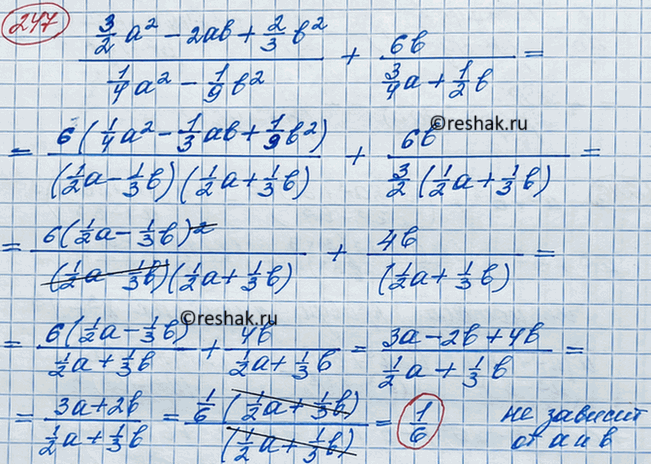 247
(3/2 a² - 2ab + 2/3 b²)/(1/4 a² - 1/9 b²) + 6b/(3/4 a + 1/2 b) =
= 6(1/4 a² - 1/3 ab + 1/9 b²)/((1/2 a - 1/3 b)(1/2 a + 1/3 b)) + 6b/(3/2 (1/2 a + 1/3 b)) =
©reshak.ru
= 6(1/2 a - 1/3 b)²/((1/2 a - 1/3 b)(1/2 a + 1/3 b)) + 4b/(1/2 a + 1/3 b) =
©reshak.ru
= 6(1/2 a - 1/3 b)/(1/2 a + 1/3 b) + 4b/(1/2 a + 1/3 b) = (3a - 2b + 4b)/(1/2 a + 1/3 b) =
= (3a + 2b)/(1/2 a + 1/3 b) = 1/6 (1/2 a + 1/3 b)/(1/2 a + 1/3 b) = 1/6 не зависит
от a и b